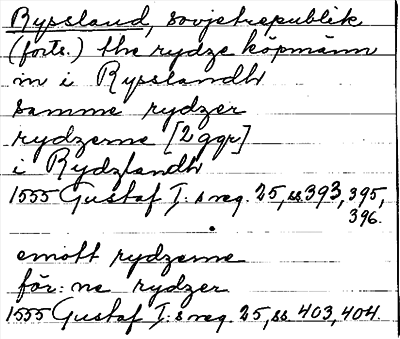 Ryssland, sovjetrepublik
(forts.) the rydze köpmänn
in i Rysslandh
samme rydzer
rydzerne [2 ggr]
i Rydzlandh
1555 Gustaf I:s reg. 25, ss. 393, 395,
396.
emott rydzerne
för:ne rydzer
1555 Gustaf I:s reg. 25, ss. 403, 404.